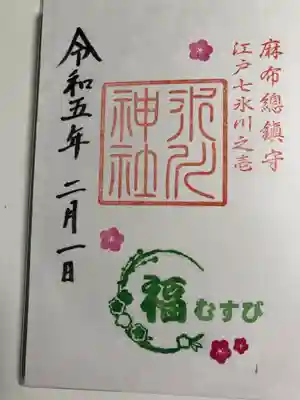 麻布總鎮守
江戸七氷川之壱
氷川神社
令和五年 二月一日
福むすび